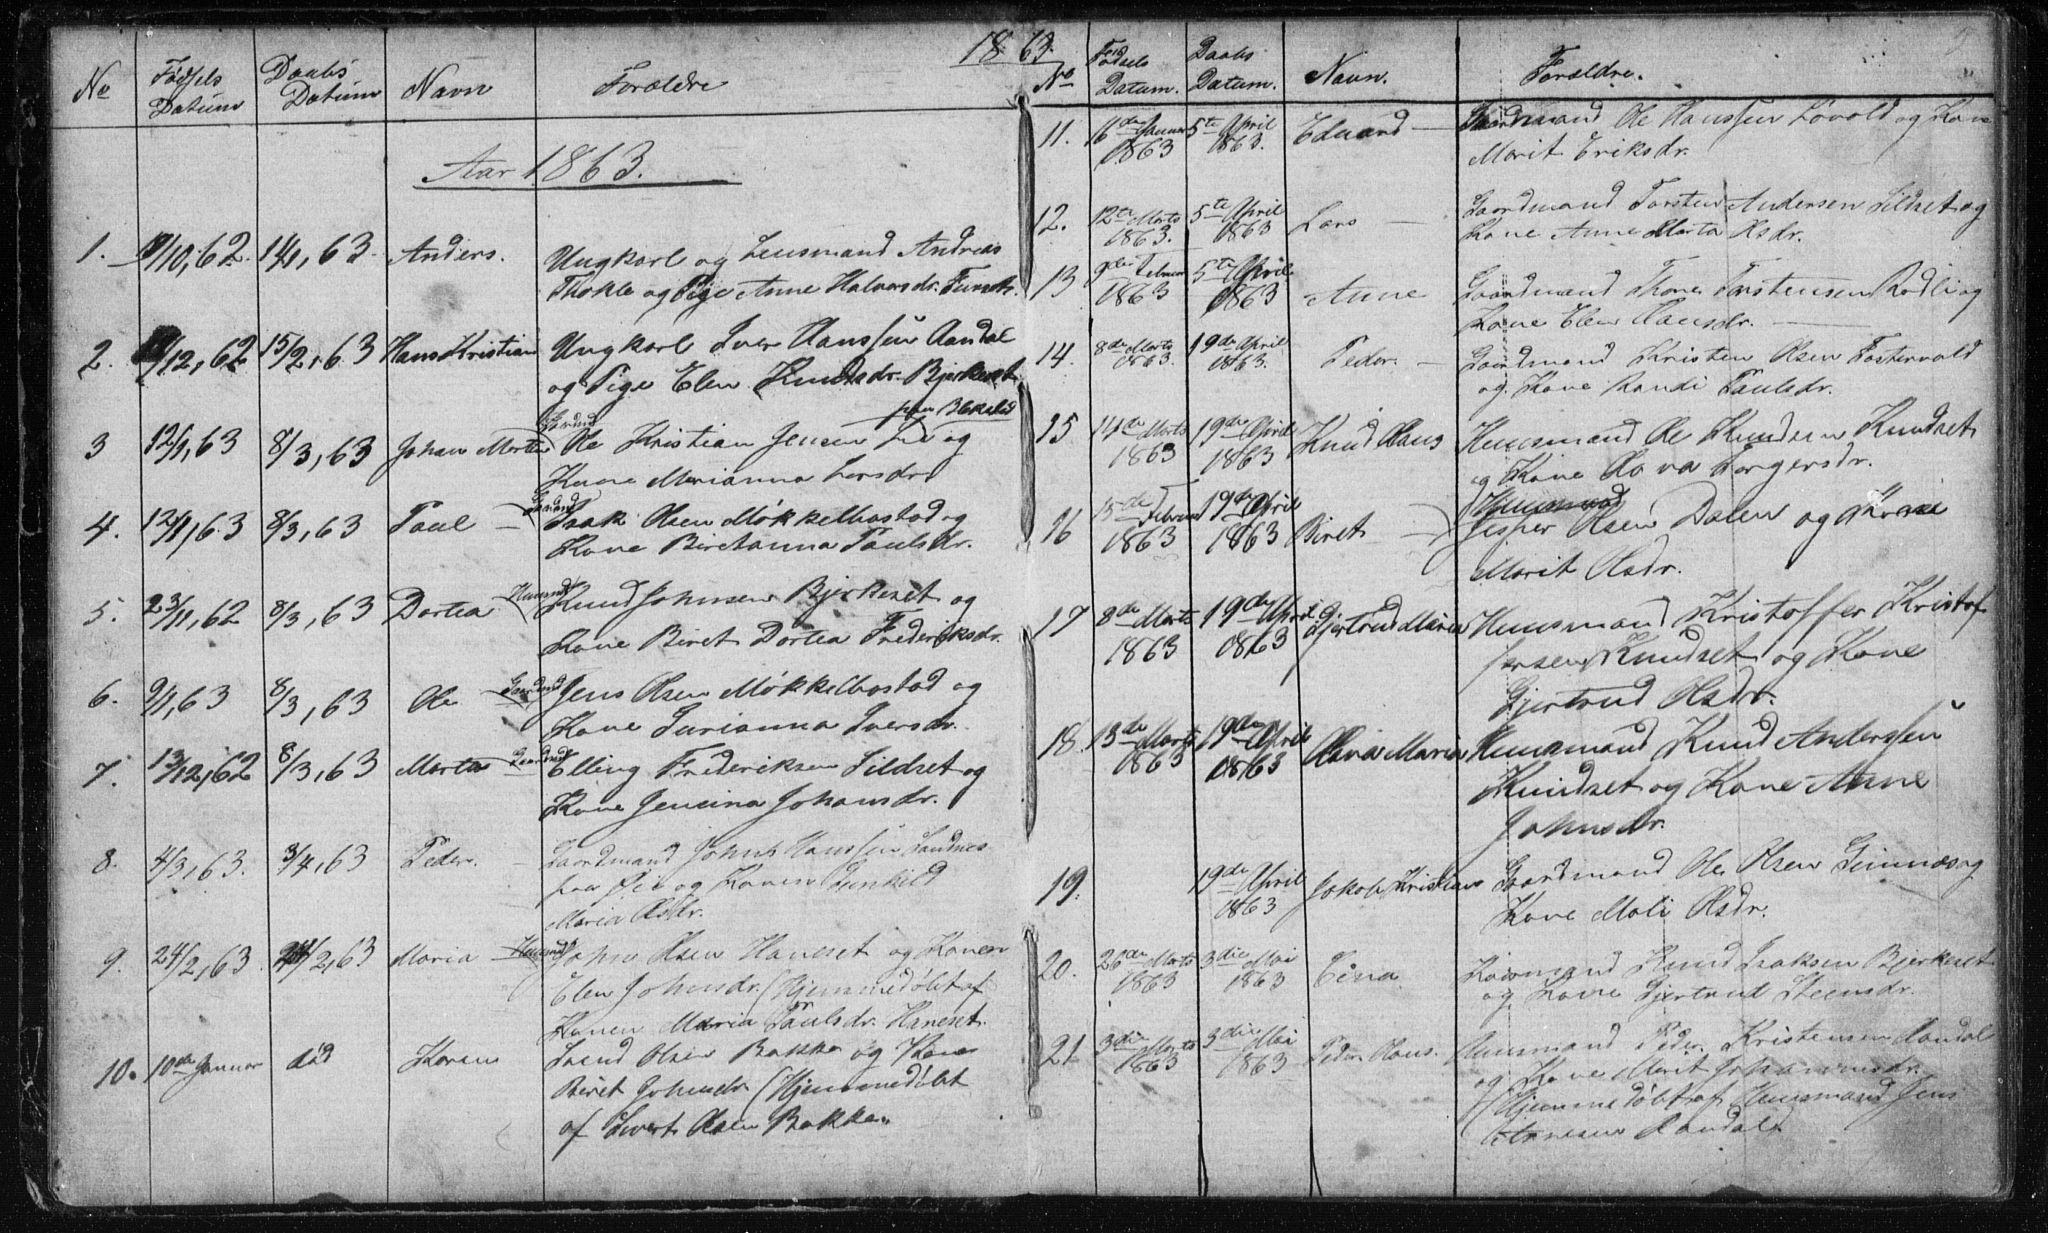 1863.
No Fødsels Datum Daabs Datum Navn Forældre
Aar 1863.
1. /10, 62. 14/1, 63. Anders. Ungkarl og Lensmand Andreas
Thokle og Pige Anne Halvorsdr. Furset.
2. /12, 62 15/2, 63 Hans Kristian Ungkarl Iver Hanssen Aandal
og Pige Elen Knudsdr. Bjerkeset
3 12/1, 63 8/3, 63 Johan Morten Gaardmd Ole Kristian Jensen og
Kone Marianna Larsdr.
4. 12/1, 63 8/3, 63 Paul – Gaardmd Isak Olsen Møkkelbostad og
Kone Beretanna Paulsdr.
5. 23/11, 62 8/3, 63 Dortea Huusmd Knud Johnsen Bjerkeset og
Kone Beret Dortea Frederiksdr.
6. 9/1, 63 8/3, 63 Ole – Gaardmd Jens Olsen Møkkelbostad og
Kone Gurianna Iversdr.
7. 13/12, 62 8/3, 63 Marta – Gaardmd Elling Frederiksen Sildset og
Kone Jensina Johansdr.
8. 4/3, 63. 3/4, 63 Peder. – Gaardmand John Hanssen Sandnes
paa Øie og Konen Gunhild
Maria Olsdr.
9. 24/2, 63. /2, 63 Maria – Huusmd John Olsen Haneset og Konen
Elen Johnsdr. (Hjemmedøbt af
Konen Maria Paulsdr. Haneset.
10. 10de Januar død Karen Svend Olsen Bakken og Kone
Beret Johnsdr. (Hjemmedøbt
af Sivert Olsen Bakken.
No Fødsels Datum. Daabs Datum. Navn. Forældre.
11. 16de Januar 1863 5te April 1863. Edvard – Gaardmand Ole Hanssen Løvold og Kone
Marit Eriksdr.
12. 12te Marts 1863. 5te April 1863 Lars – Gaardmand Torsten Andersen Sildset og
Kone Anne Marta Olsdr.
13 9de Februar 1863 5te April 1863 Anne Gaardmand Thore Torstensen Rødli og
Kone Elen Hansdr. –
14. 8de Marts 1863. 19de April 1863. Peder. – Gaardmand Kristen Olsen Fostervold
og Kone Randi Paulsdr.
15 14de Marts 1863 19de April 1863 Knud Hans Huusmand Ole Knudsen Knudset
og Kone Torgersdr.
16 15de Februar 1863 19de April 1863 Beret – Huusmand
Jesper Olsen Dalen og Kone
Marit Olsdr.
17 8de Marts 1863 19de April 1863 Gjertrud Maria Huusmand Kristoffer Kristof
fersen Knudset og Kone
Gjertrud Olsdr.
18. 15de Marts 1863 19de April 1863 Olava Maria Huusmand Knud Anderssen
Knudset og Kone Anne
Johnsdr.
19. 19de April 1863 Jakob Kristian Gaardmand Ole Olsen Gimnæs og
Kone Mali Olsdr.
20. 26de Marts 1863 3die Mai 1863 Gaardmand Knud Isaksen Bjerkeset
og Kone Gjertrud Steensdr.
21 3die Marts 1863 3die Mai 1863 Peder Hans. Huusmand Peder Kristensen Aandal
og Kone Marit Johannesdr.
(Hjemmedøbt af Huusmand Jens
Arnesen Aandal.